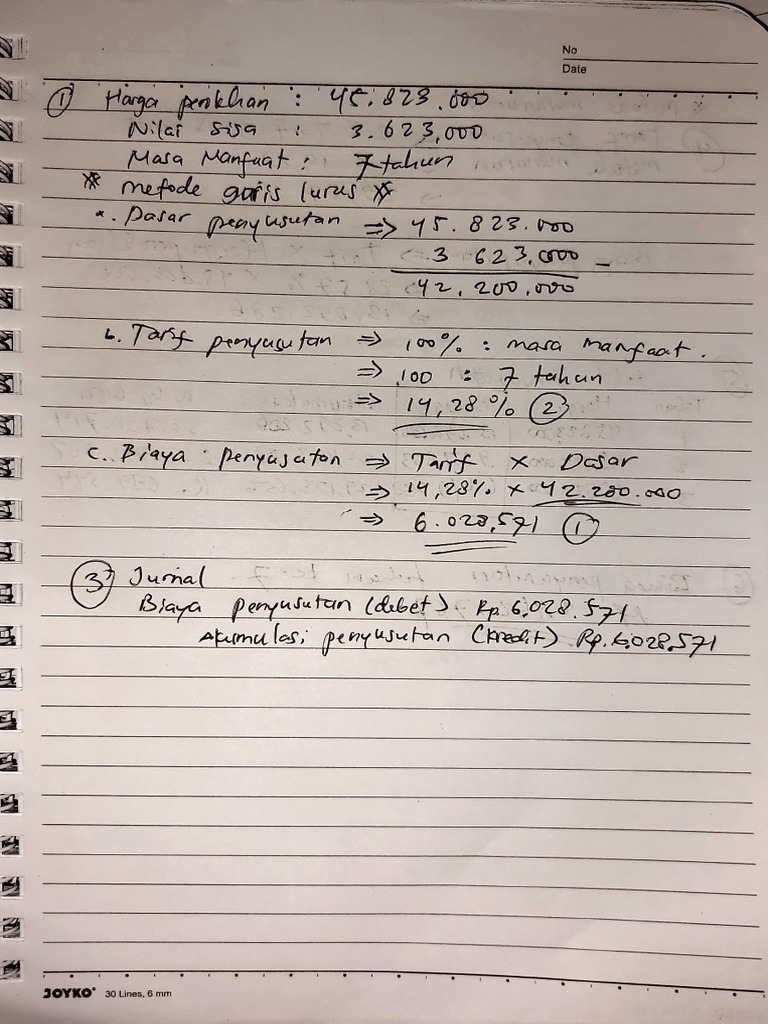 No
Date
① Harga perolehan : 45.823.000
Nilai sisa : 3.623,000
Masa Manfaat : 7 tahun
* metode garis lurus *
a. Dasar penyusutan ⇒ 45.823.000
3 623.000 _
42.200.000
b. Tarif penyusutan ⇒ 100% : masa manfaat.
⇒ 100 : 7 tahun
⇒ 14,28% ②
c. Biaya penyusutan ⇒ Tarif × Dasar
⇒ 14,28% × 42.200.000
⇒ 6.028,571 ①
③ Jurnal
Biaya penyusutan (debet) Rp. 6.028.571
Akumulasi penyusutan (kredit) Rp. 6.028.571
JOYKO 30 Lines, 6 mm